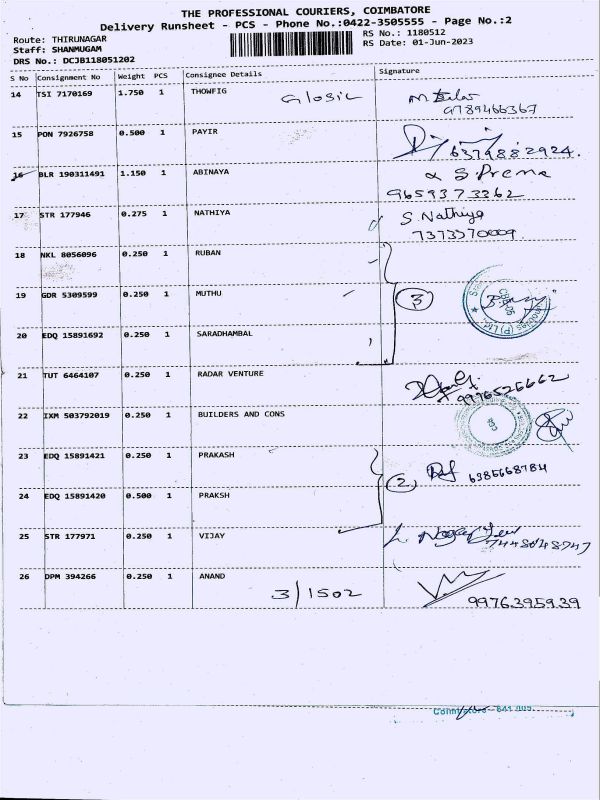 THE PROFESSIONAL COURIERS, COIMBATORE
Delivery Runsheet - PCS - Phone No.:0422-3505555 - Page No.:2
Route: THIRUNAGAR RS No.: 1180512
Staff: SHANMUGAM RS Date: 01-Jun-2023
DRS No.: DCJB118051202
S No Consignment No Weight PCS Consignee Details Signature
14 TSI 7170169 1.750 1 THOWFIG
9789466367
15 PON 7926758 0.500 1 PAYIR
6379882924.
16 BLR 190311491 1.150 1 ABINAYA S. Prema
9659373362
17 STR 177946 0.275 1 NATHIYA S. Nathiya
7373370009.
18 NKL 8056096 0.250 1 RUBAN
19 GDR 5309599 0.250 1 MUTHU 3
20 EDQ 15891692 0.250 1 SARADHAMBAL
21 TUT 6464107 0.250 1 RADAR VENTURE
9976526662
22 IXM 503792019 0.250 1 BUILDERS AND CONS
23 EDQ 15891421 0.250 1 PRAKASH
2 6385668784
24 EDQ 15891420 0.500 1 PRAKSH
25 STR 177971 0.250 1 VIJAY
7448048747
26 DPM 394266 0.250 1 ANAND
3/1502 9976395939